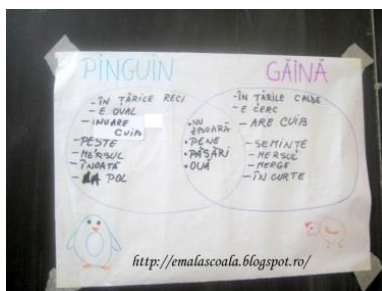 PINGUIN
GĂINĂ
- ÎN ȚĂRILE RECI
- E OVAL
- INUARE
CUIB
- PESTE
- MERSUL
- ÎNOATĂ
- LA POL
• NU
ZBOARĂ
• PENE
• PĂSĂRI
• OUĂ
- ÎN ȚĂRILE CALDE
- E CERC
- ARE CUIB
- SEMINTE
- MERSUL
- MERGE
- ÎN CURTE
http://emalascoala.blogspot.ro/